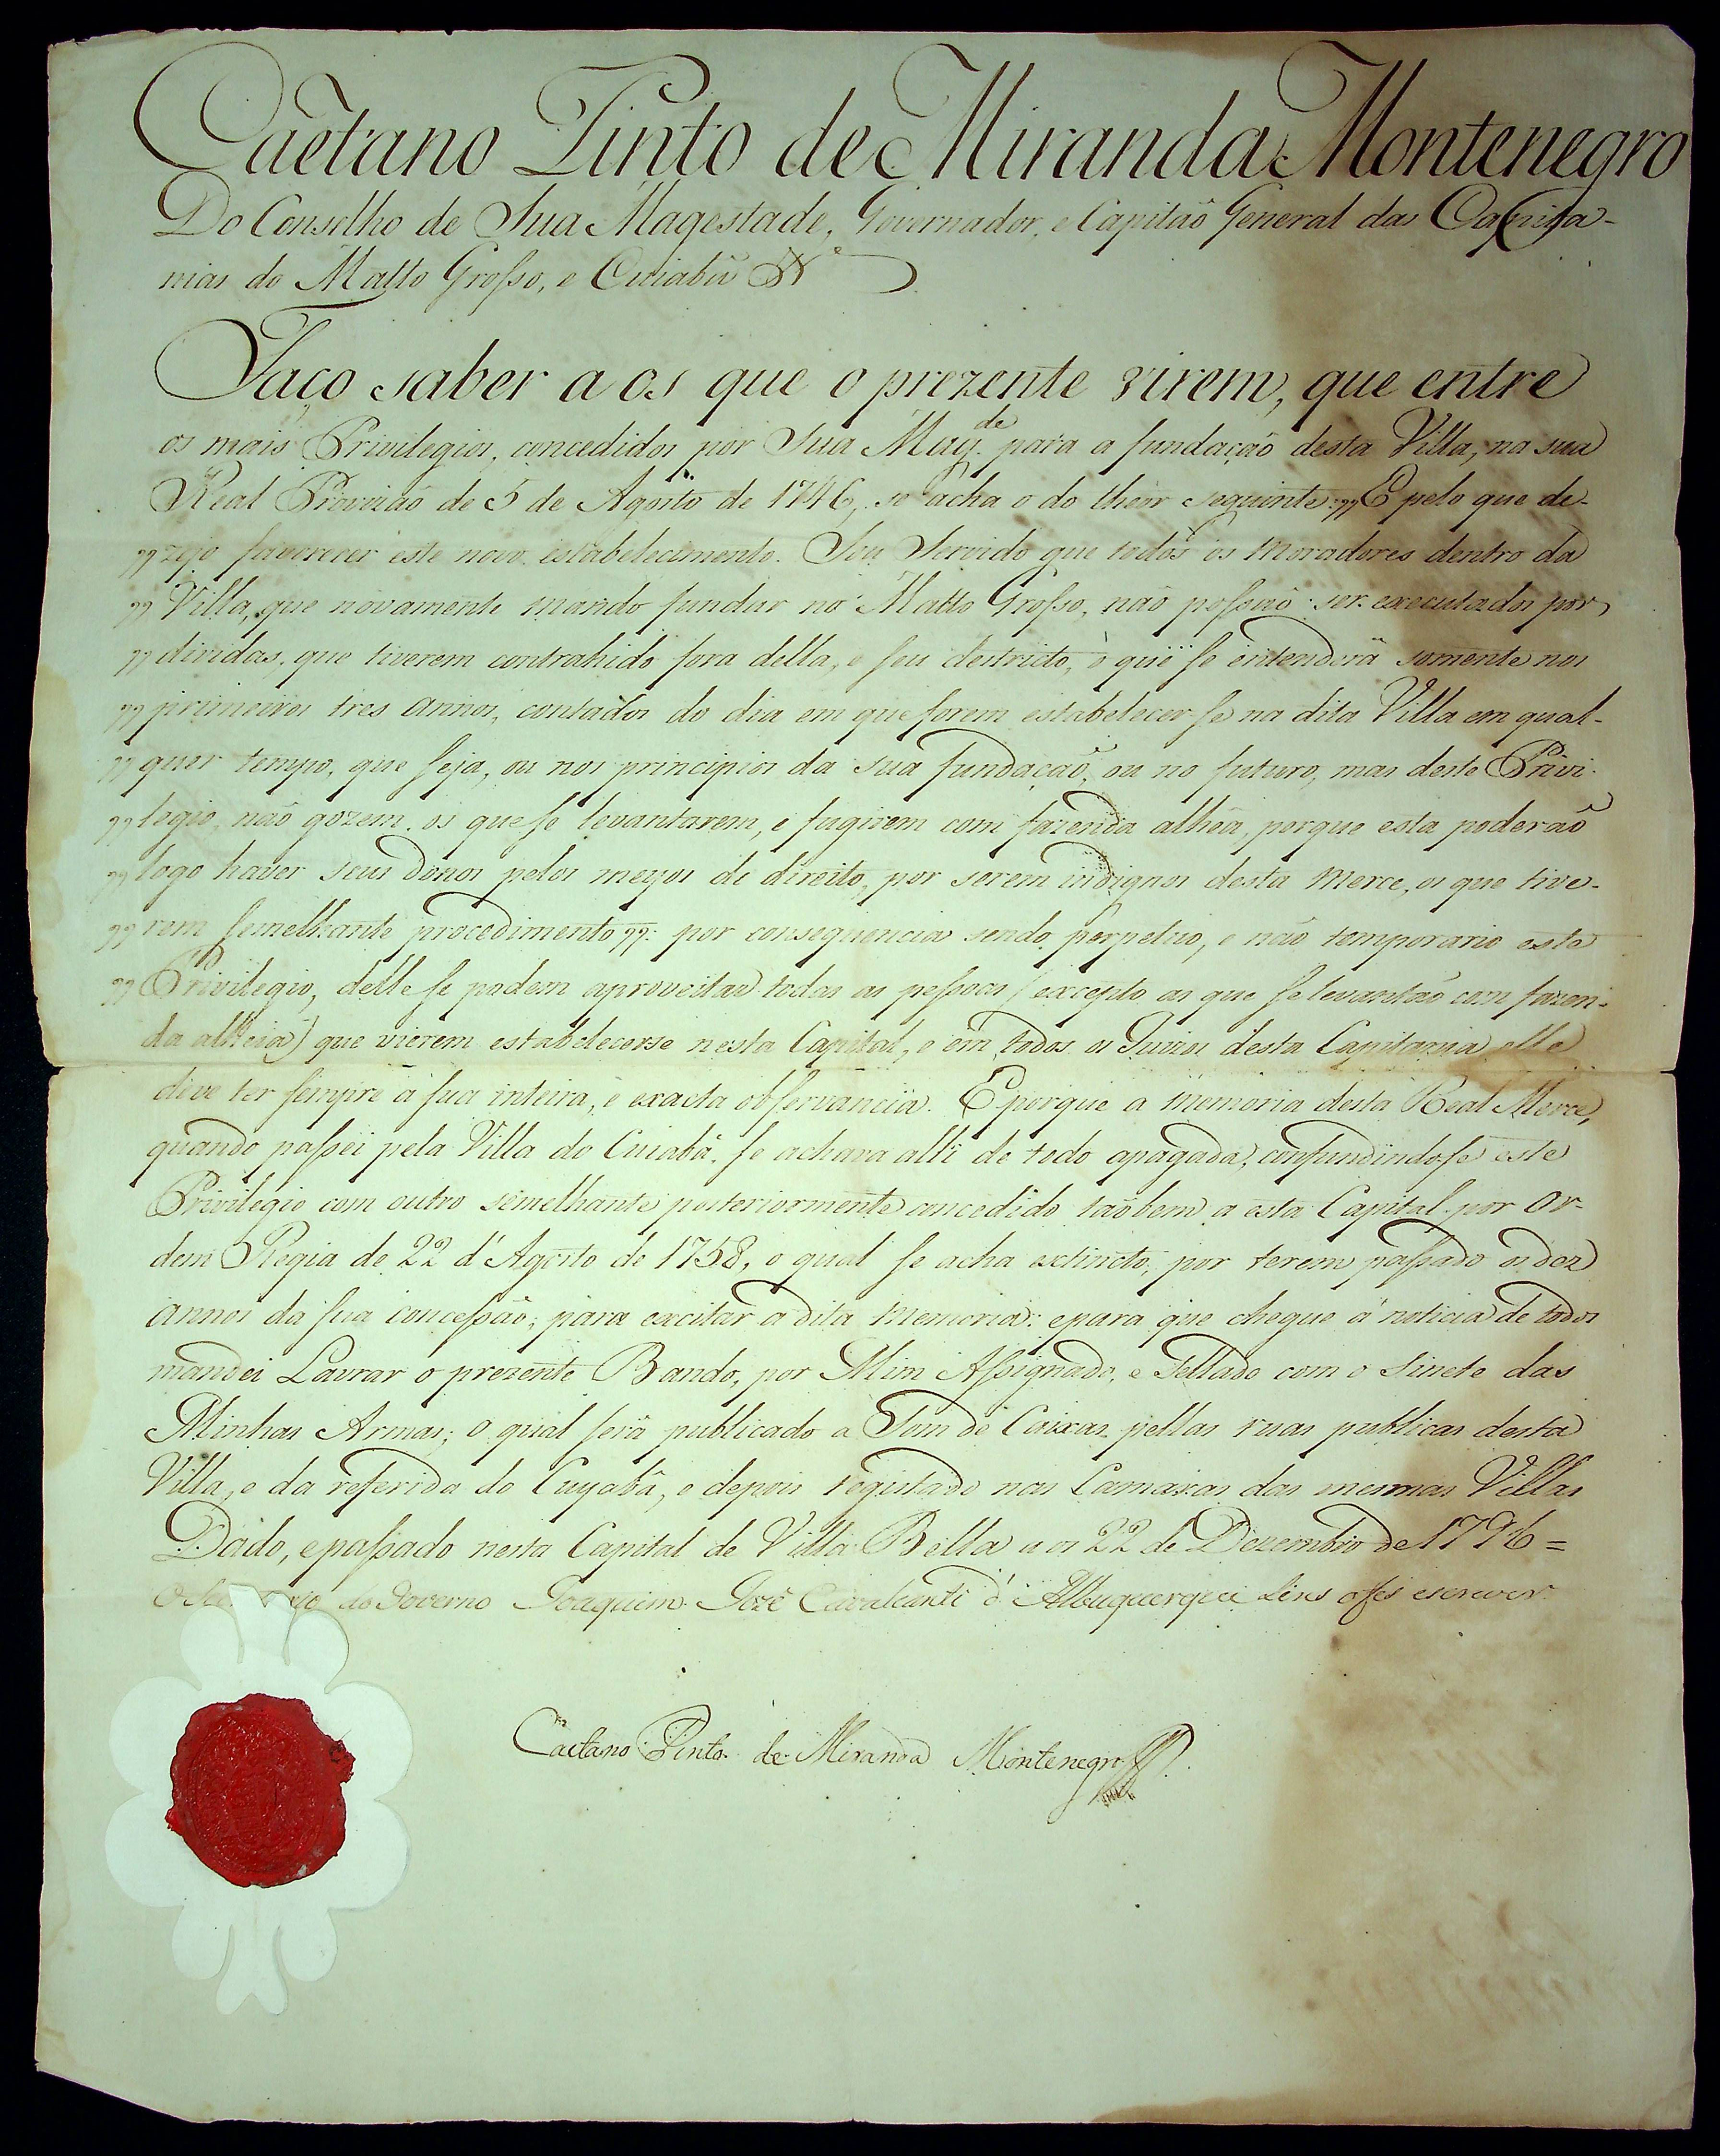 Caêtano Pinto de Miranda Montenegro
Do Conselho de Sua Magestade, Governador, e Capitaõ General das Capita-
nias do Matto Grosso, e Cuiabâ &ª
Faço saber a os que o prezente virem, que entre
os mais Privilegios, concedidos por Sua Mag.de para a fundaçaõ desta Villa, na sua
Real Provizaõ de 5 de Agosto de 1746, se acha o do theor seguinte: „E pelo que de-
„zejo favorecer este novo estabelecimento. Sou Servido que todos os Moradores dentro da
„Villa, que novamente mando fundar no Matto Grosso, naõ possaõ ser executados por
„dividas, que tiverem contrahido fora della, e seu destricto, o que se entenderâ somente nos
„primeiros tres annos, contados do dia em que forem estabelecer se na dita Villa em qual-
„quer tempo, que seja, ou nos principios da sua fundaçaõ, ou no futuro, mas deste Privi-
„legio, naõ gozem os que se levantarem, e fugirem com fazenda alhea, porque esta poderaõ
„logo haver seus donos pelos meyos de direito, por serem indignos desta Merce, os que tive-
„rem semelhante procedimento„: por consequencia sendo perpetuo, e naõ temporario este
„Privilegio, delle se podem aproveitar todas as pessoas (excepto as que se levantaõ com fazen-
da alheia) que vierem estabelecerse nesta Capital, e em todos os Juizos desta Capitania elle
deve ter sempre a sua inteira, e exacta observancia. E porque a memoria desta Real Merce,
quando passei pela Villa do Cuiabâ, se achava alli de todo apagada, confundindose este
Privilegio com outro semelhante posteriormente concedido taõbem a esta Capital por Or-
dem Regia de 22 d'Agosto de 1758, o qual se acha extincto, por terem passado os dez
annos da sua concessaõ; para excitar a dita memoria: e para que chegue á noticia de todos
mandei Lavrar o prezente Bando, por Mim Assignado, e Sellado com o Sinete das
Minhas Armas; o qual serâ publicado a Som de Caixas pellas ruas publicas desta
Villa, e da referida do Cuyabâ, e depois registado nas Camaras das mesmas Villas
Dado, e passado nesta Capital de Villa Bella a os 22 de Dezembro de 1796=
do Governo Joaquim Jozê Cavalcanti d'Albuquerque Lins o fes escrever
Caetano Pinto de Miranda Montenegro